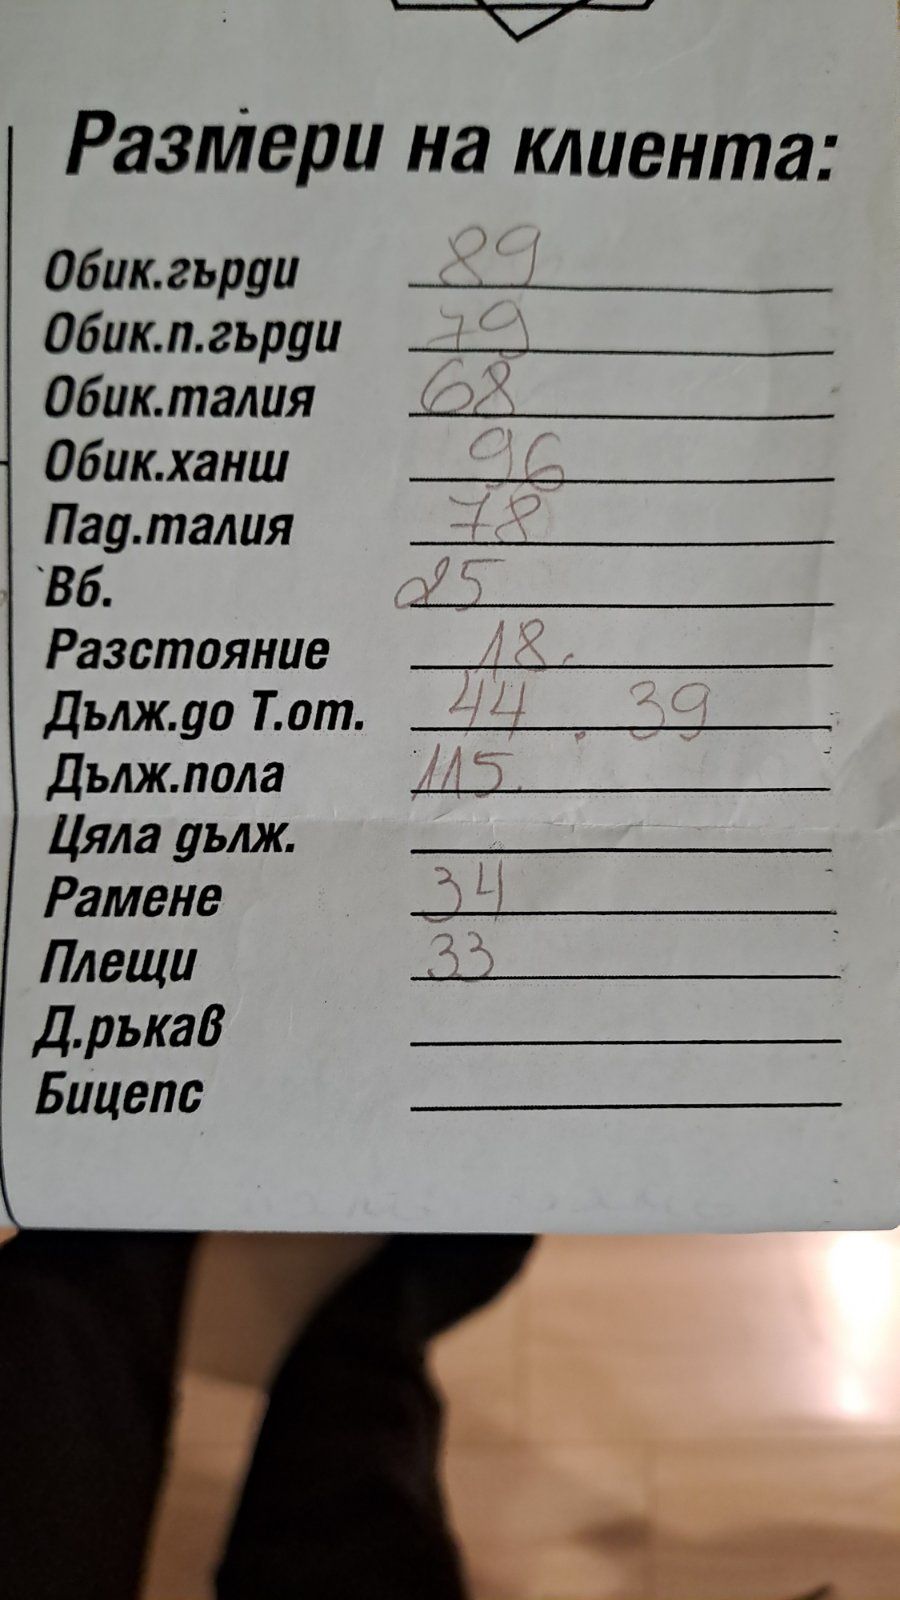 Размери на клиента:
Обик.гърди 89
Обик.п.гърди 79
Обик.талия 68
Обик.ханш 96
Пад.талия 78
Вб. 25
Разстояние 18.
Дълж.до Т.от. 44 . 39
Дълж.пола 115.
Цяла дълж.
Рамене 34
Плещи 33
Д.ръкав
Бицепс